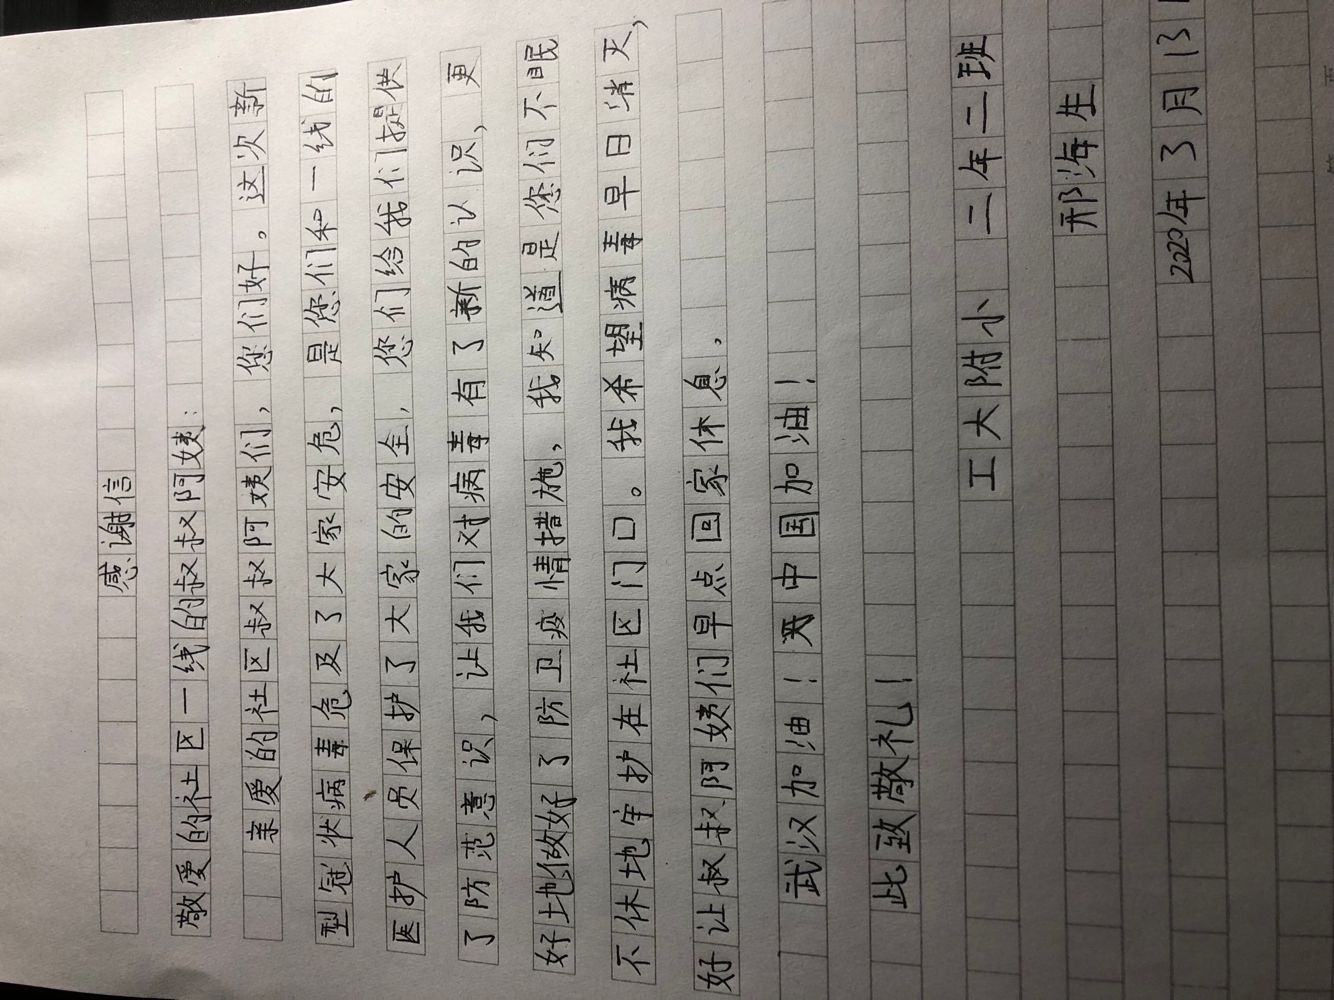 感谢信
敬爱的社区一线的叔叔阿姨：
亲爱的社区叔叔阿姨们，您们好。这次新
型冠状病毒危及了大家安危，是您们和一线的
医护人员保护了大家的安全，您们给我们提供
了防范意识，让我们对病毒有了新的认识、更
好地做好了防卫疫情措施，我知道是您们不眠
不休地守护在社区门口。我希望病毒早日消灭，
好让叔叔阿姨们早点回家休息。
武汉加油！中国加油！
此致敬礼！
工大附小 二年二班
邢海生
2020年3月13